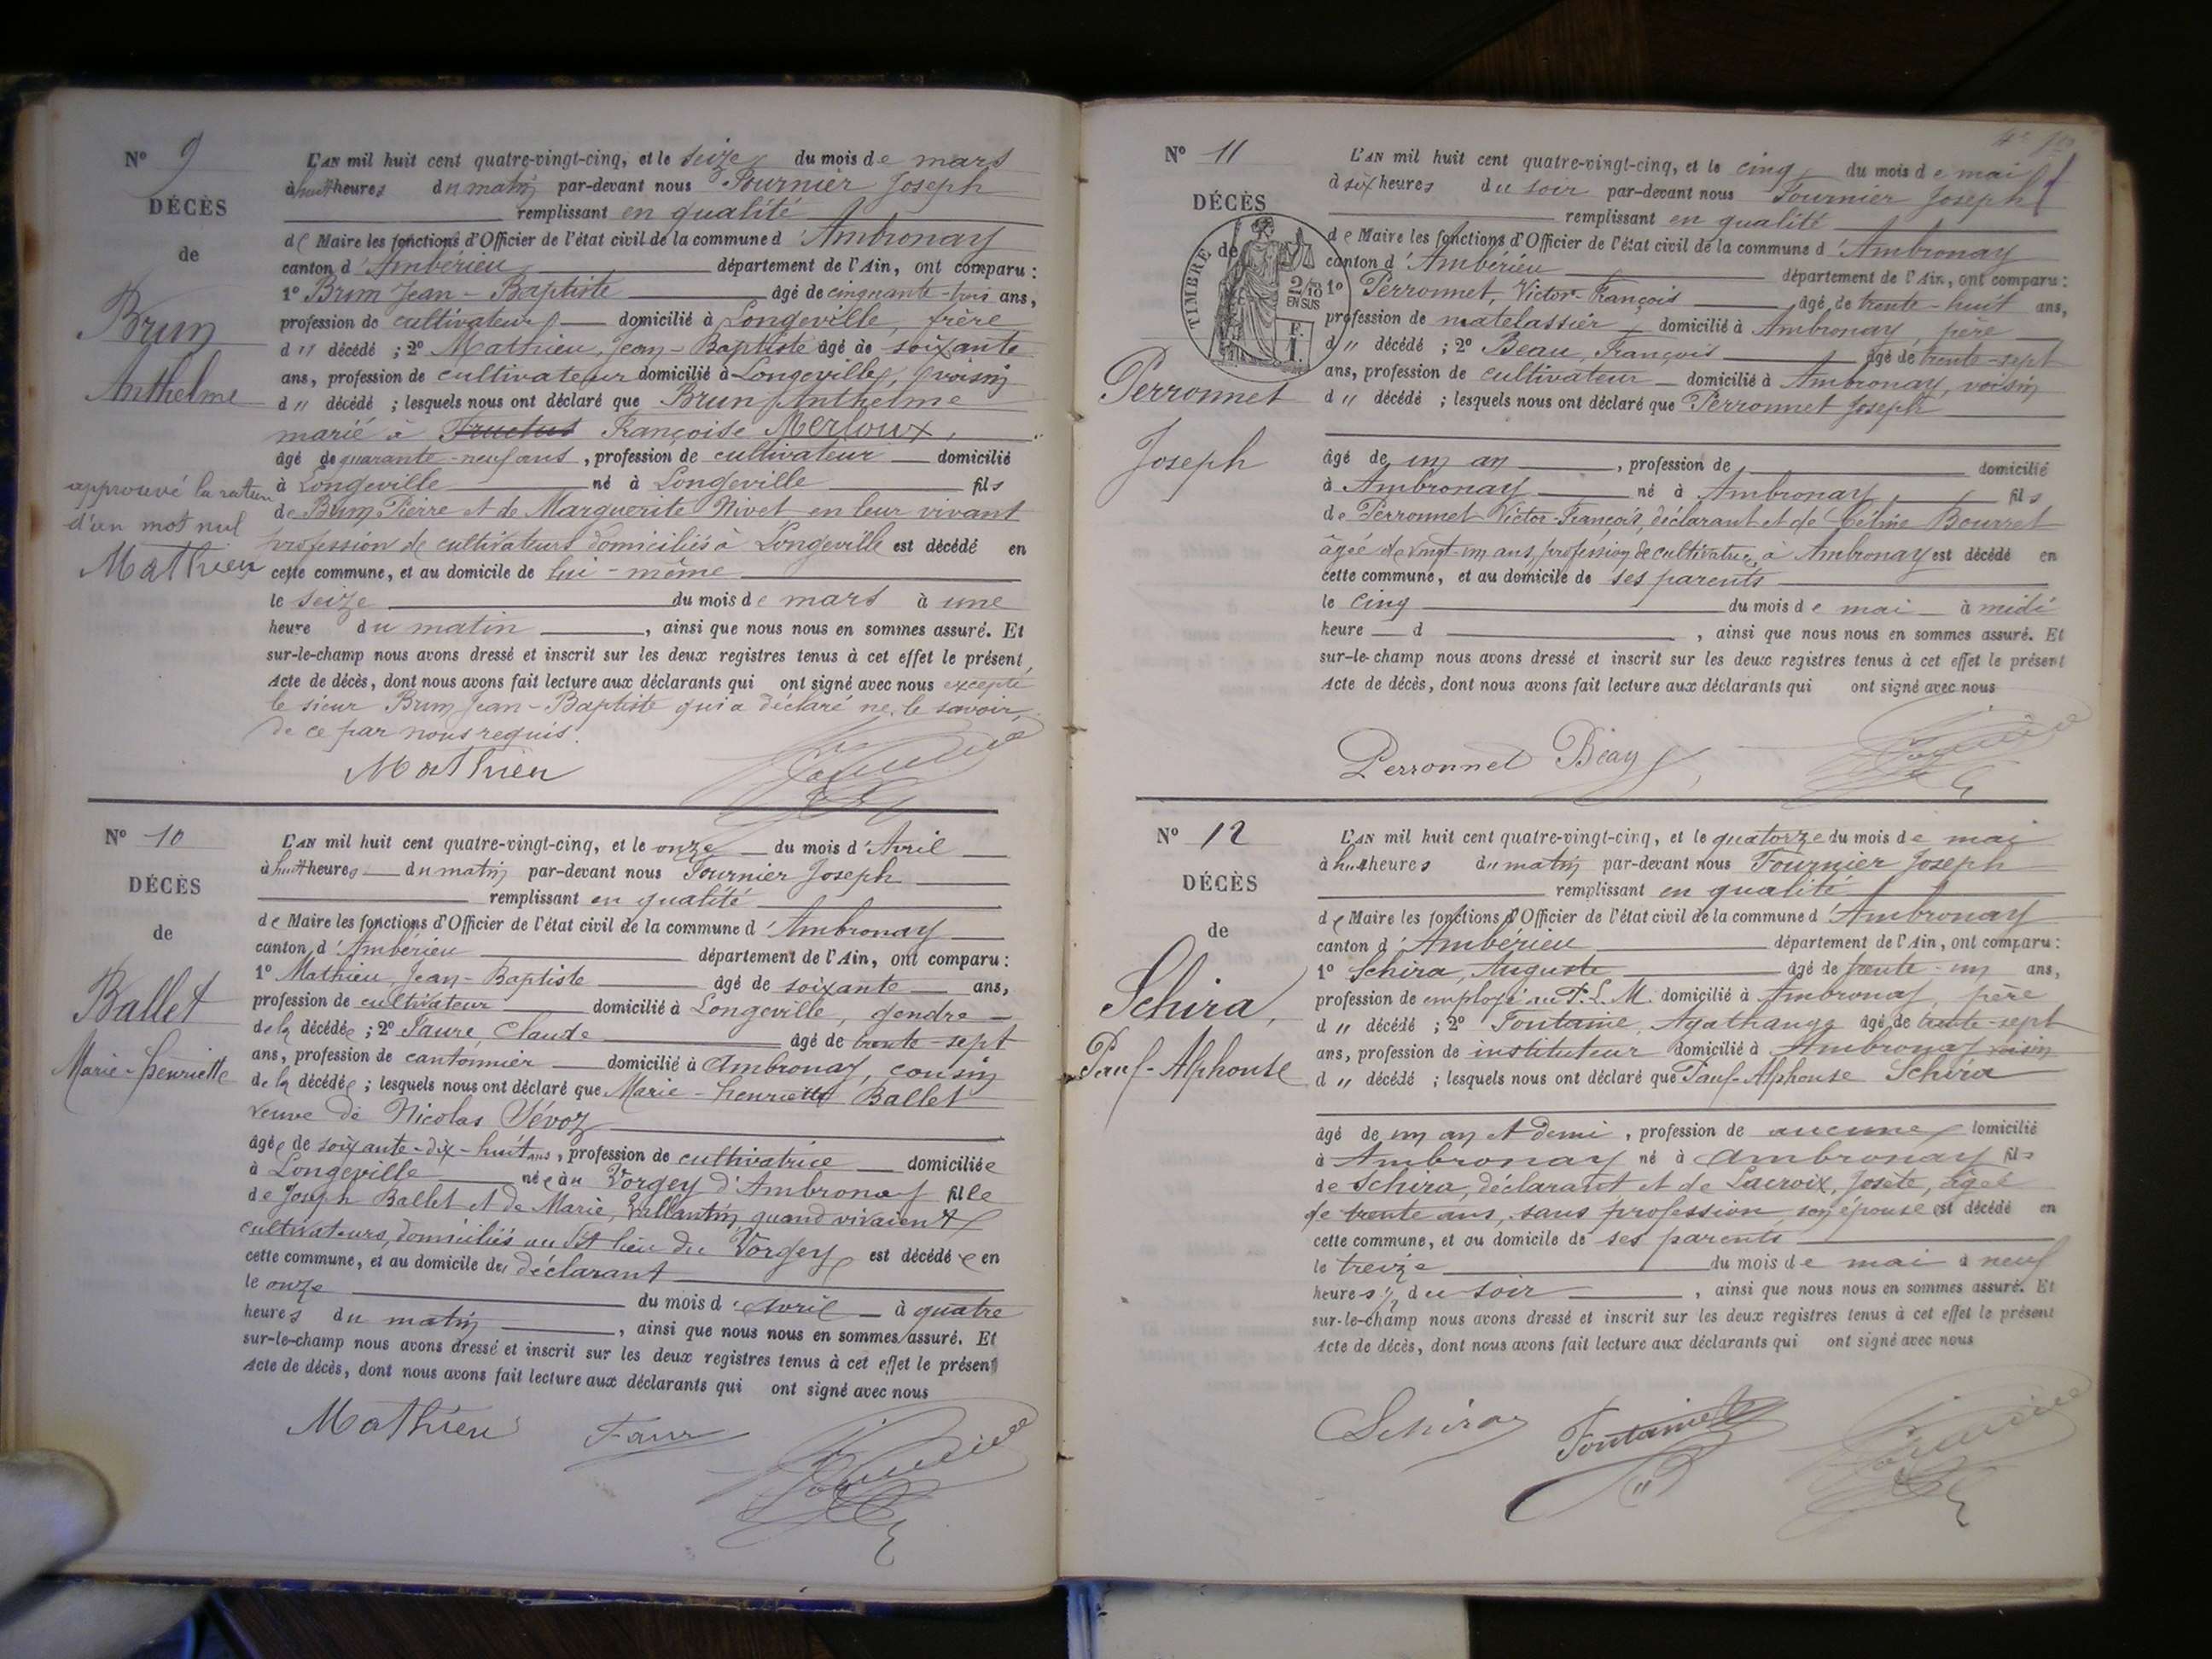 N° 9
DÉCÈS
de
Brun
Anthelme
approuvé la rature
d'un mot nul
Mathieu
L'AN mil huit cent quatre-vingt-cinq, et le seize du mois de mars
à huit heures du matin par-devant nous Fournier Joseph
remplissant en qualité
de Maire les fonctions d'Officier de l'état civil de la commune d'Ambronay
canton d'Ambérieu département de l'Ain, ont comparu :
1° Brun Jean-Baptiste âgé de cinquante-trois ans,
profession de cultivateur domicilié à Longeville, frère
d u décédé ; 2° Mathieu, Jean-Baptiste âgé de soixante
ans, profession de cultivateur domicilié à Longeville, voisin
d u décédé ; lesquels nous ont déclaré que Brun Anthelme
marié à Fructus Françoise Merloux,
âgé de quarante-neuf ans, profession de cultivateur domicilié
à Longeville né à Longeville fils
de Brun Pierre et de Marguerite Nivet en leur vivant
profession de cultivateurs domiciliés à Longeville est décédé en
cette commune, et au domicile de lui-même
le seize du mois de mars à une
heure du matin, ainsi que nous nous en sommes assuré. Et
sur-le-champ nous avons dressé et inscrit sur les deux registres tenus à cet effet le présent
Acte de décès, dont nous avons fait lecture aux déclarants qui ont signé avec nous excepté
le sieur Brun Jean-Baptiste qui a déclaré ne le savoir,
de ce par nous requis.
Mathieu Fournier
N° 10
DÉCÈS
de
Ballet
Marie-henriette
L'AN mil huit cent quatre-vingt-cinq, et le onze du mois d'Avril
à huit heures du matin par-devant nous Fournier Joseph
remplissant en qualité
de Maire les fonctions d'Officier de l'état civil de la commune d'Ambronay
canton d'Ambérieu département de l'Ain, ont comparu :
1° Mathieu, Jean-Baptiste âgé de soixante ans,
profession de cultivateur domicilié à Longeville, gendre
de la décédée ; 2° Faure Claude âgé de trente-sept
ans, profession de cantonnier domicilié à Ambronay, cousin
de la décédée ; lesquels nous ont déclaré que Marie-henriette Ballet
veuve de Nicolas Sévoz
âgée de soixante-dix-huit ans, profession de cultivatrice domiciliée
à Longeville née au Vorgey d'Ambronay fille
de Joseph Ballet et de Marie, Vallantin, quand vivaient
cultivateurs, domiciliés au dit lieu du Vorgey est décédée en
cette commune, et au domicile du déclarant
le onze du mois d'avril à quatre
heures du matin, ainsi que nous nous en sommes assuré. Et
sur-le-champ nous avons dressé et inscrit sur les deux registres tenus à cet effet le présent
Acte de décès, dont nous avons fait lecture aux déclarants qui ont signé avec nous
Mathieu Faure Fournier
N° 11
DÉCÈS
de
TIMBRE
2/10
EN SUS
Perronnet
Joseph
L'AN mil huit cent quatre-vingt-cinq, et le cinq du mois de mai
à six heures du soir par-devant nous Fournier Joseph
remplissant en qualité
de Maire les fonctions d'Officier de l'état civil de la commune d'Ambronay
canton d'Ambérieu département de l'Ain, ont comparu :
1° Perronnet, Victor-François âgé de trente-huit ans,
profession de matelassier domicilié à Ambronay, père
d u décédé ; 2° Beau, François âgé de trente-sept
ans, profession de cultivateur domicilié à Ambronay, voisin
d u décédé ; lesquels nous ont déclaré que Perronnet Joseph
âgé de un an, profession de domicilié
à Ambronay né à Ambronay, fils
de Perronnet Victor-François, déclarant et de Céline Bourret
âgée de vingt-un ans, profession de cultivatrice, à Ambronay est décédé en
cette commune, et au domicile de ses parents
le cinq du mois de mai à midi
heure d , ainsi que nous nous en sommes assuré. Et
sur-le-champ nous avons dressé et inscrit sur les deux registres tenus à cet effet le présent
Acte de décès, dont nous avons fait lecture aux déclarants qui ont signé avec nous
Perronnet Béau Fournier
N° 12
DÉCÈS
de
Schira,
Paul-Alphonse
L'AN mil huit cent quatre-vingt-cinq, et le quatorze du mois de mai
à huit heures du matin par-devant nous Fournier Joseph
remplissant en qualité
de Maire les fonctions d'Officier de l'état civil de la commune d'Ambronay
canton d'Ambérieu département de l'Ain, ont comparu :
1° Schira, Auguste âgé de trente-un ans,
profession de employé au P.L.M. domicilié à Ambronay, père
d u décédé ; 2° Fontaine, Agathange âgé de trente-sept
ans, profession de instituteur domicilié à Ambronay voisin
d u décédé ; lesquels nous ont déclaré que Paul-Alphonse Schira
âgé de un an et demi, profession de aucune domicilié
à Ambronay né à Ambronay fils
de Schira, déclarant et de Lacroix, Josète, âgée
de trente ans, sans profession son épouse est décédé en
cette commune, et au domicile de ses parents
le treize du mois de mai à neuf
heures ½ du soir, ainsi que nous nous en sommes assuré. Et
sur-le-champ nous avons dressé et inscrit sur les deux registres tenus à cet effet le présent
Acte de décès, dont nous avons fait lecture aux déclarants qui ont signé avec nous
Schira Fontaine Fournier